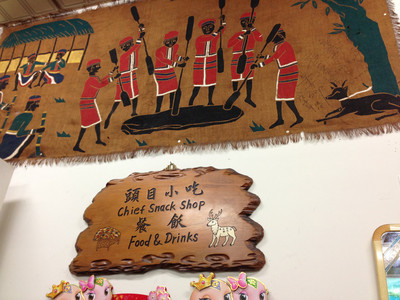 頭目小吃
Chief Snack Shop
餐飲
Food & Drinks